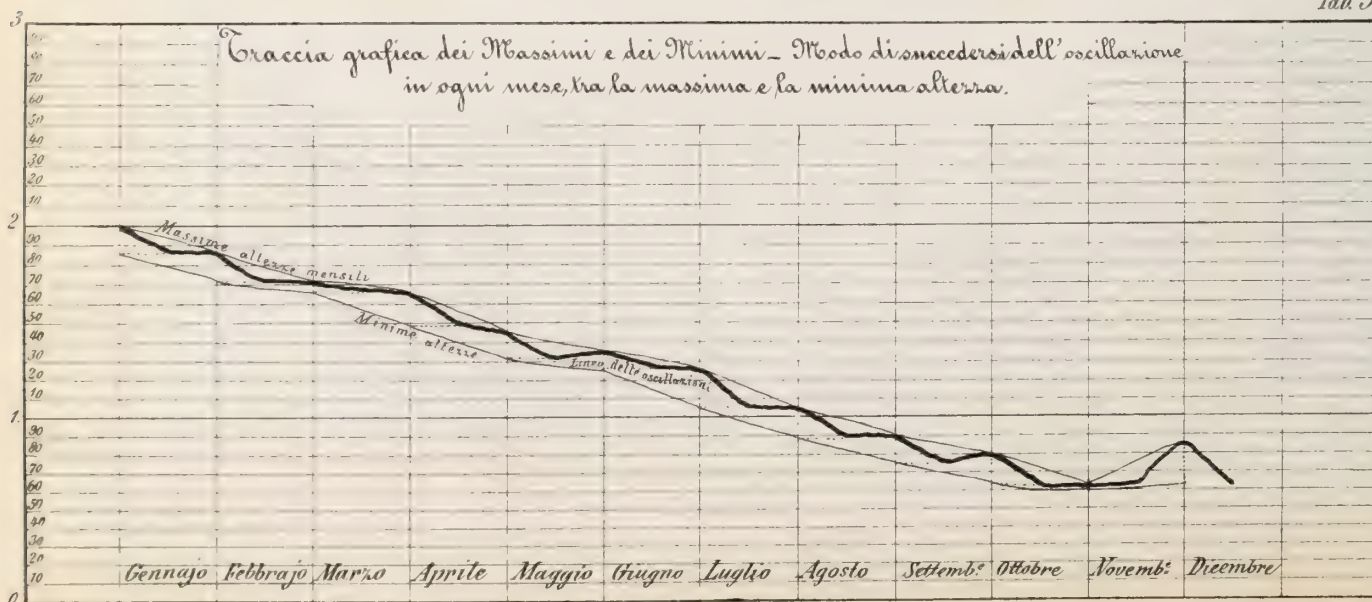 Tab.
Traccia grafica dei Massimi e dei Minimi _ Modo di succedersi dell'oscillazione
in ogni mese, tra la massima e la minima altezza.
3
90
80
70
60
50
40
30
20
10
2
90
80
70
60
50
40
30
20
10
1.
90
80
70
60
50
40
30
20
10
0
Massime altezze mensili
Minime altezze
Linea delle oscillazioni
Gennajo Febbrajo Marzo Aprile Maggio Giugno Luglio Agosto Settemb.e Ottobre Novemb.e Dicembre